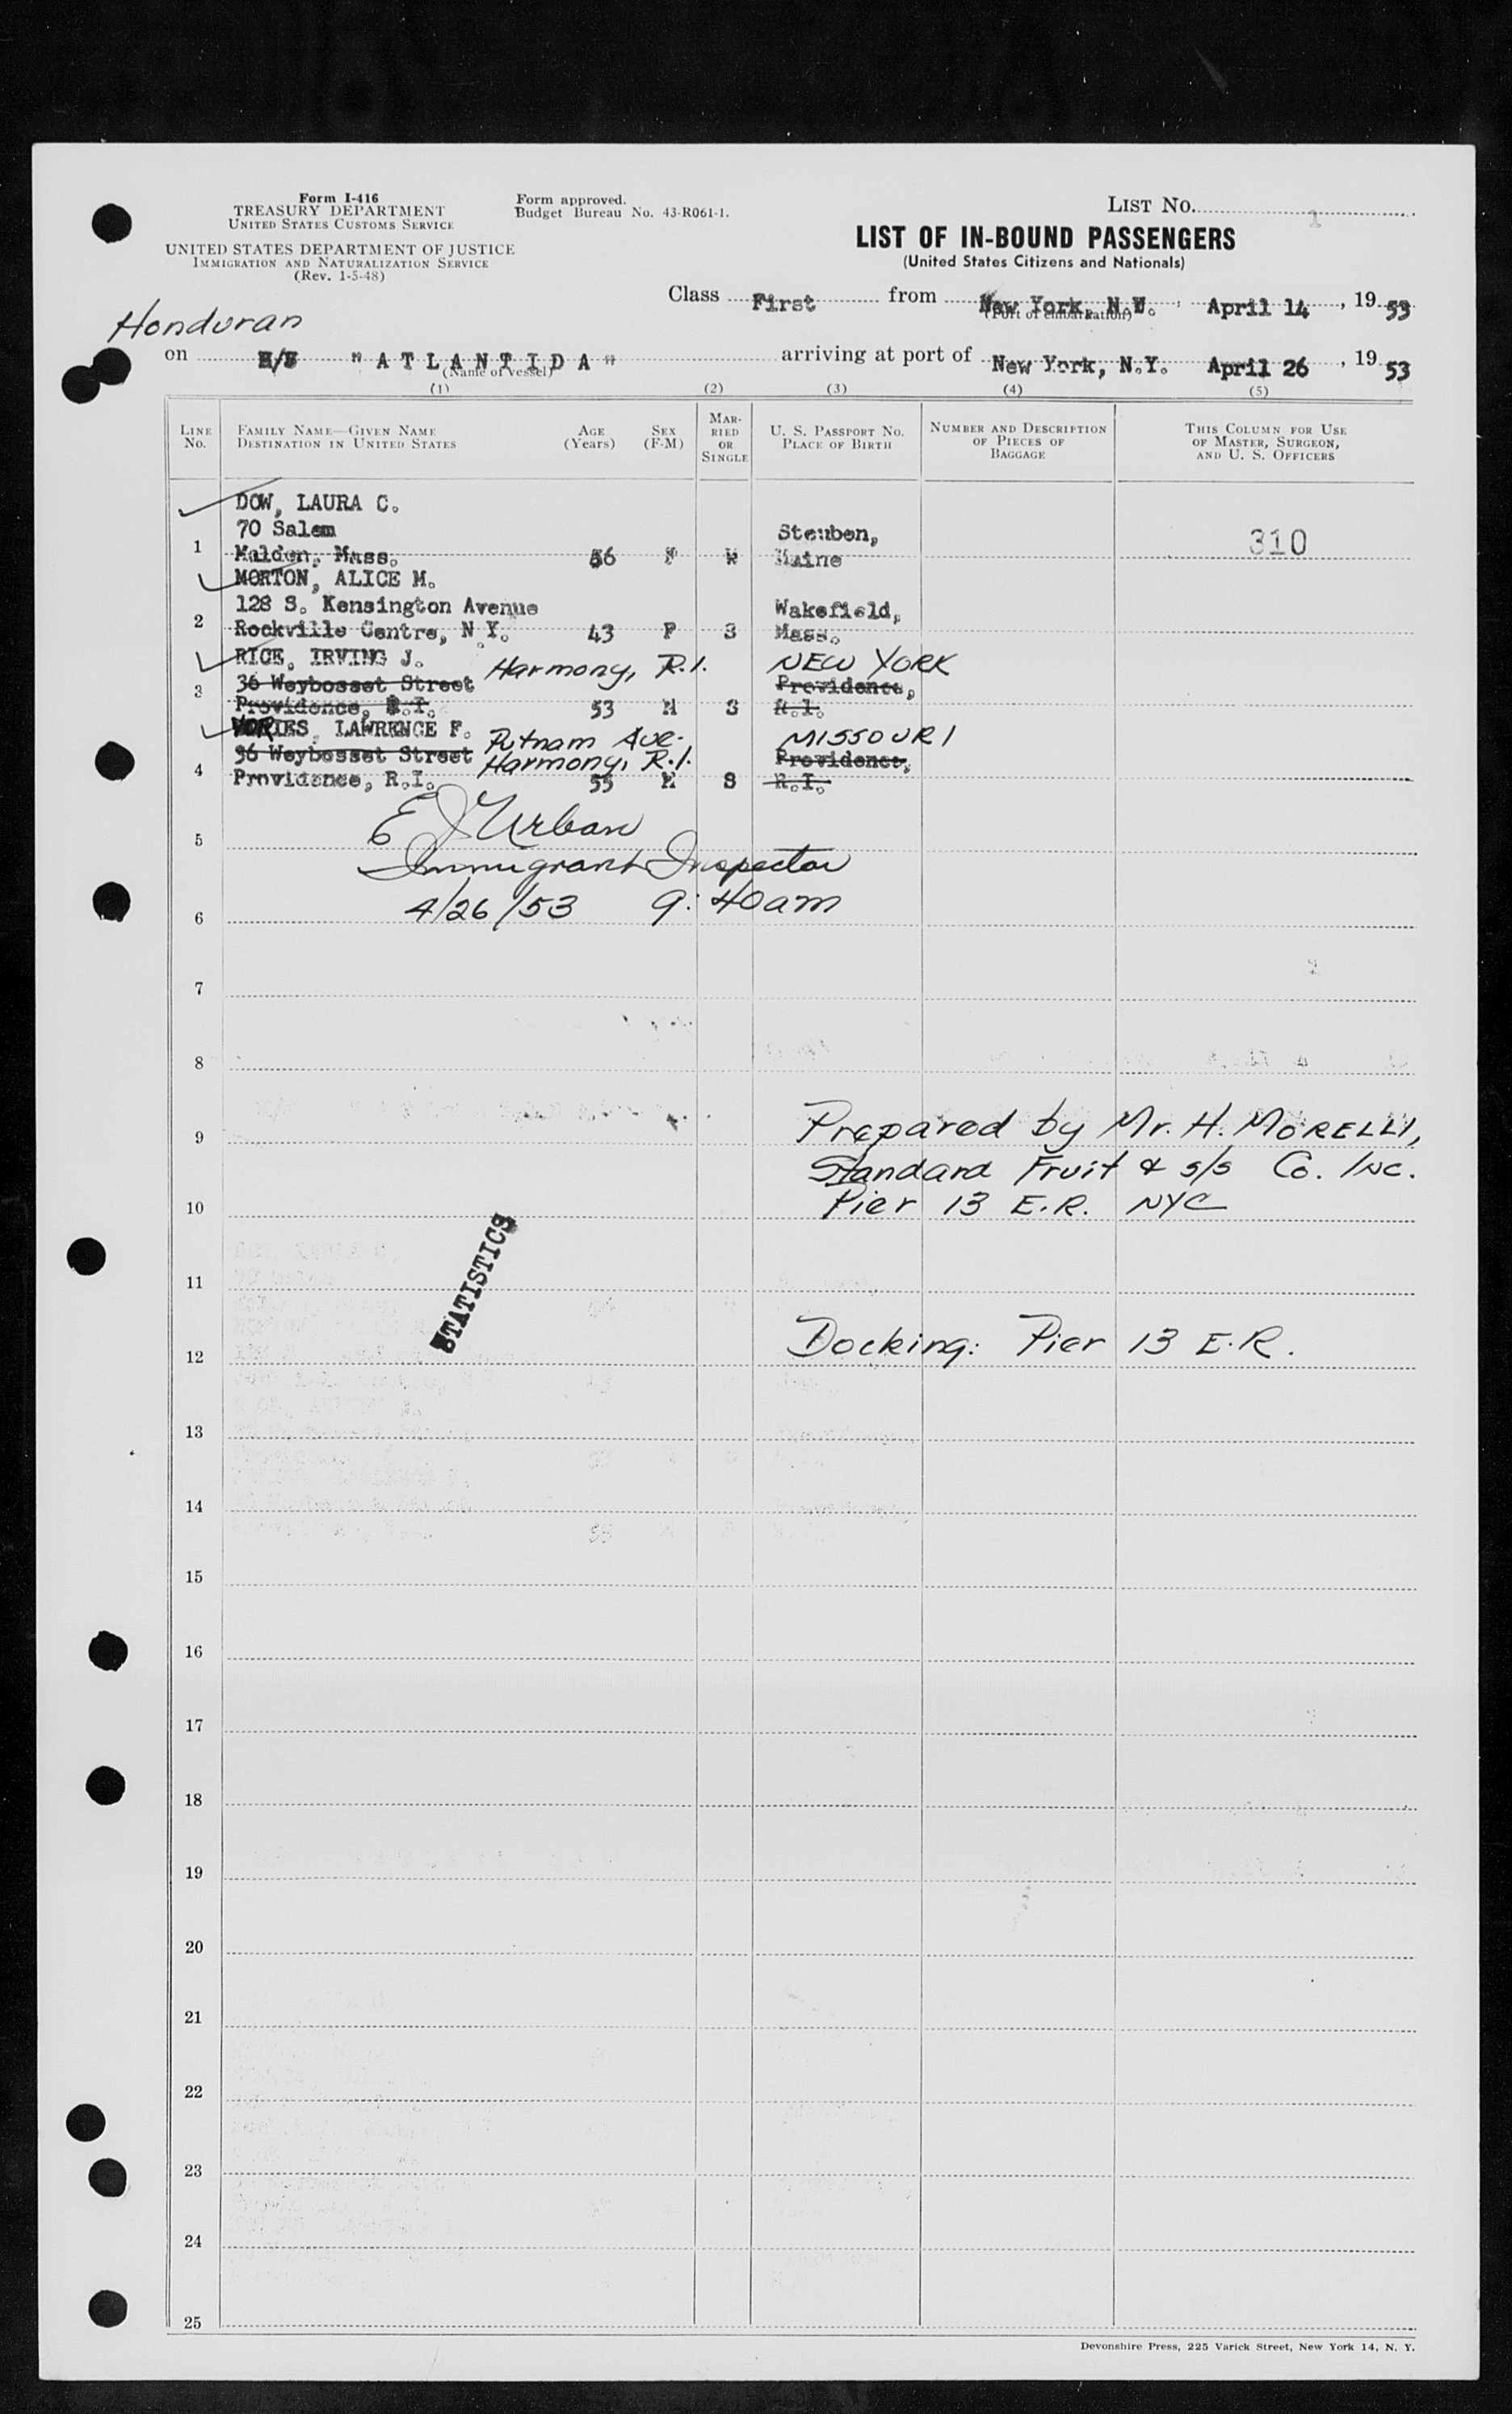 Form I-416
TREASURY DEPARTMENT
UNITED STATES CUSTOMS SERVICE
UNITED STATES DEPARTMENT OF JUSTICE
IMMIGRATION AND NATURALIZATION SERVICE
(Rev. 1-5-48)
Form approved.
Budget Bureau No. 43-R061-1.
LIST No. 1
LIST OF IN-BOUND PASSENGERS
(United States Citizens and Nationals)
Class First from New York, N.Y. April 14, 1953
(Port of embarkation)
Honduran
on "ATLANTIDA" arriving at port of New York, N.Y. April 26, 1953
(Name of vessel)
(1) (2) (3) (4) (5)
LINE No. FAMILY NAME—GIVEN NAME DESTINATION IN UNITED STATES AGE (Years) SEX (F-M) MARRIED OR SINGLE U. S. PASSPORT No. PLACE OF BIRTH NUMBER AND DESCRIPTION OF PIECES OF BAGGAGE THIS COLUMN FOR USE OF MASTER, SURGEON, AND U. S. OFFICERS
DOW, LAURA C.
70 Salem Steuben,
1 Malden, Mass. 56 F Maine 310
MORTON, ALICE M.
128 S. Kensington Avenue Wakefield,
2 Rockville Centre, N.Y. 43 F S Mass.
RICE, IRVING J. Harmony, R.I. NEW YORK
36 Weybosset Street Providence,
3 Providence, R.I. 53 M S R.I.
VORIES, LAWRENCE F. Putnam Ave. MISSOURI
36 Weybosset Street Harmony, R.I. Providence,
4 Providence, R.I. 55 M S R.I.
E J Urban
5
Immigrant Inspector
6 4/26/53 9:40am
7
8
9 Prepared by Mr. H. MORELLI,
Standard Fruit & S/S Co. Inc.
10 Pier 13 E.R. NYC
STATISTICS
11
12 Docking: Pier 13 E.R.
13
14
15
16
17
18
19
20
21
22
23
24
25
Devonshire Press, 225 Varick Street, New York 14, N. Y.